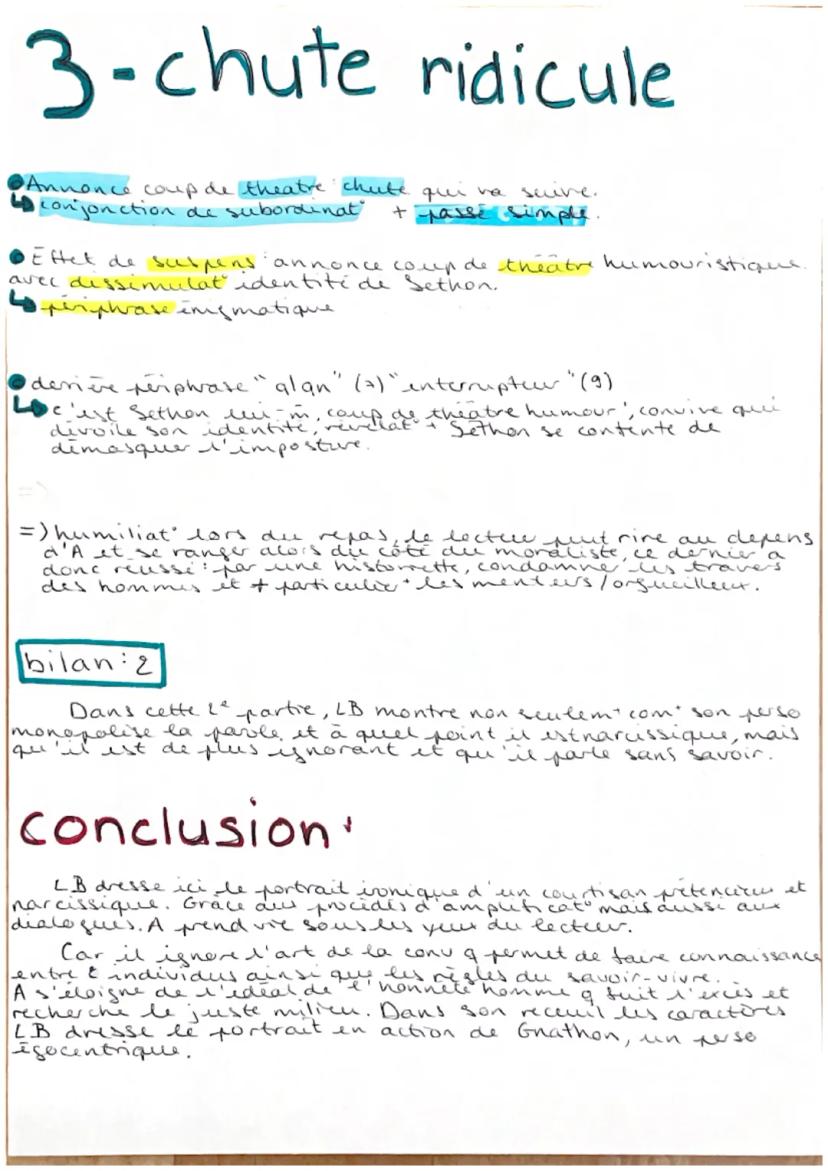 3-chute ridicule
Annonce coup de theatre chute qui va suivre.
conjonction de subordinat° + passé simple.
Effet de suspens annonce coup de théâtre humouristique.
avec dissimulat° identité de Sethon.
périphrase énigmatique
derrière périphrase "qlqn" (7) "interrupteur" (9)
c'est Sethon lui-m̂, coup de théâtre humour', convive qui
dévoile son identité, révélat° + Sethon se contente de
démasquer l'imposture.
=)
=) humiliat° lors du repas, le lecteur peut rire au depens
d'A et se ranger alors du côté du moraliste, ce dernier a
donc réussi : par une historiette, condamner les travers
des hommes et + particulier+ les menteurs / orgueilleux.
bilan : 2
Dans cette 2e partie, LB montre non seulem+ com+ son perso
monopolise la parole et à quel point il est narcissique, mais
qu'il est de plus ignorant et qu'il parle sans savoir.
conclusion
LB dresse ici le portrait ironique d'un courtisan prétencieux et
narcissique. Grâce aux procédés d'amplificat° mais aussi aux
dialogues. A prend vie sous les yeux du lecteur.
Car il ignore l'art de la conv q permet de faire connaissance
entre 2 individus ainsi que les règles du savoir-vivre.
A s'éloigne de l'idéal de l'honnête homme q fuit l'excès et
recherche le juste milieu. Dans son receuil les caractères
LB dresse le portrait en action de Gnathon, un perso
égocentrique.